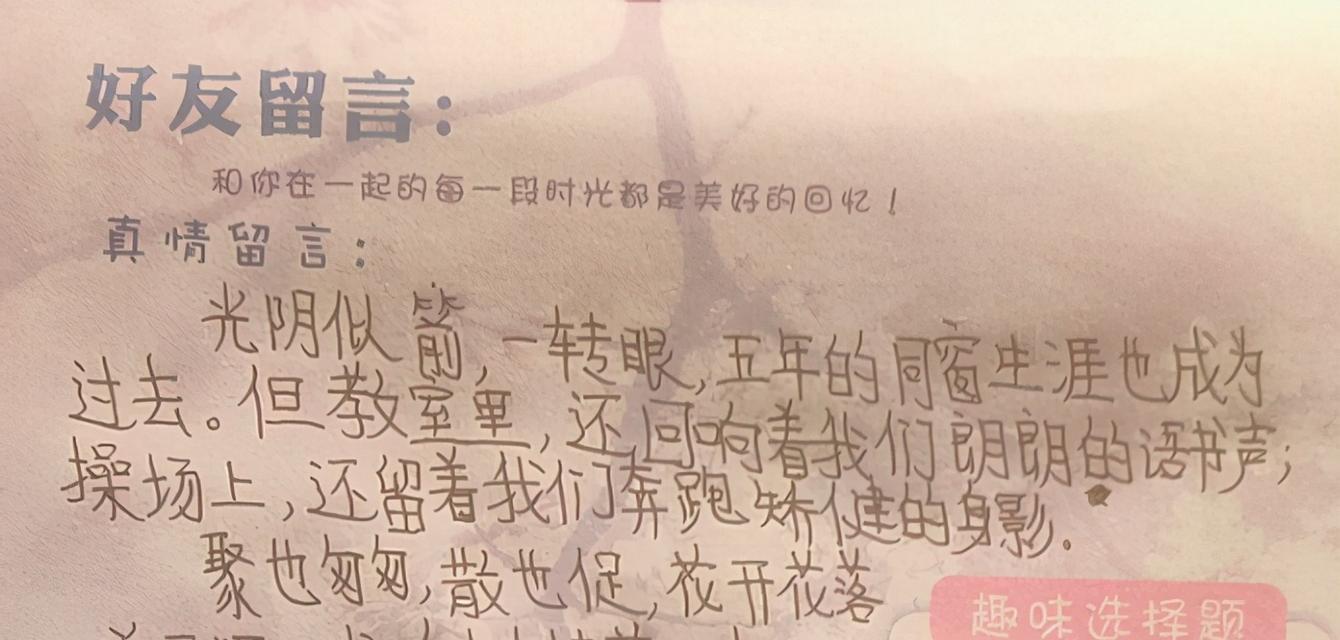 好友留言：
和你在一起的每一段时光都是美好的回忆！
真情留言：
光阴似箭，一转眼，五年的同窗生涯也成为
过去。但教室里，还回响着我们朗朗的语书声；
操场上，还留着我们奔跑矫健的身影。
聚也匆匆，散也促，花开花落
趣味选择题